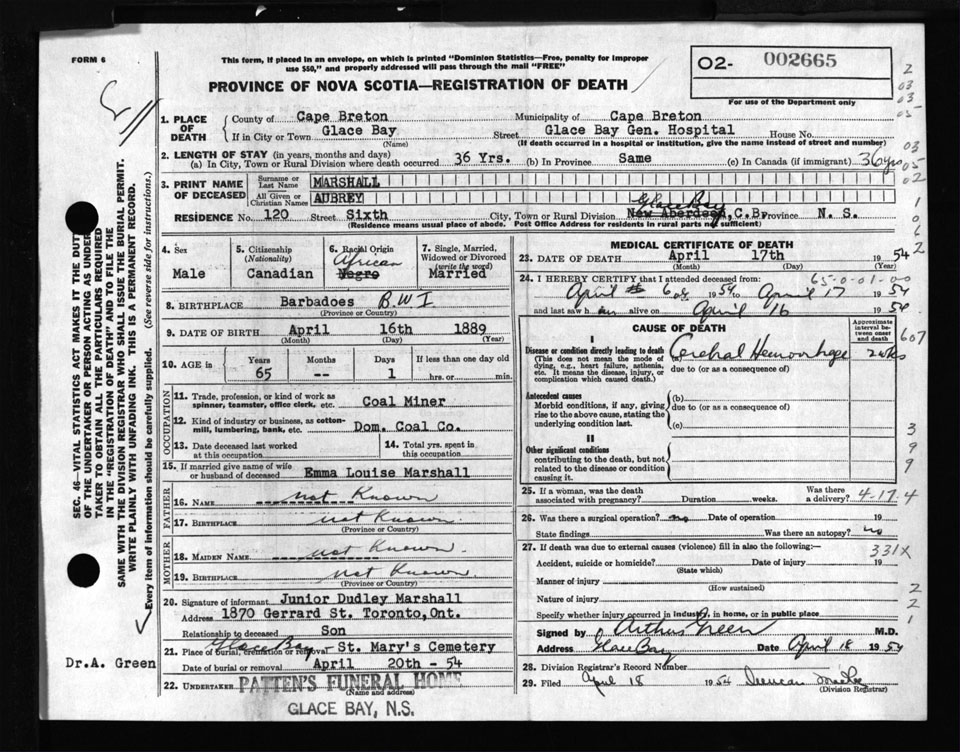 FORM 6
This form, if placed in an envelope, on which is printed "Dominion Statistics—Free, penalty for improper
use $50," and properly addressed will pass through the mail "FREE"
PROVINCE OF NOVA SCOTIA—REGISTRATION OF DEATH
O2- 002665
For use of the Department only
1. PLACE OF DEATH
County of Cape Breton Municipality of Cape Breton
If in City or Town Glace Bay Street Glace Bay Gen. Hospital House No.
(Name) (If death occurred in a hospital or institution, give the name instead of street and number)
2. LENGTH OF STAY (in years, months and days)
(a) In City, Town or Rural Division where death occurred 36 Yrs. (b) In Province Same (c) In Canada (if immigrant) 36 yrs
3. PRINT NAME OF DECEASED
Surname or Last Name MARSHALL
All Given or Christian Names AUBREY
RESIDENCE No. 120 Street Sixth City, Town or Rural Division Glace Bay New Aberdeen, C.B. Province N. S.
(Residence means usual place of abode. Post Office Address for residents in rural parts not sufficient)
4. Sex
Male
5. Citizenship
(Nationality)
Canadian
6. Racial Origin
African
Negro
7. Single, Married, Widowed or Divorced
(write the word)
Married
8. BIRTHPLACE Barbadoes B.W.I
(Province or Country)
9. DATE OF BIRTH April 16th 1889
(Month) (Day) (Year)
10. AGE in Years Months Days If less than one day old
65 -- 1 hrs. or min.
OCCUPATION
11. Trade, profession or kind of work as
spinner, teamster, office clerk, etc. Coal Miner
12. Kind of industry or business, as cotton-
mill, lumbering, bank, etc. Dom. Coal Co.
13. Date deceased last worked
at this occupation
14. Total yrs. spent in
this occupation
15. If married give name of wife
or husband of deceased Emma Louise Marshall
FATHER
16. NAME not Known
17. BIRTHPLACE not Known
(Province or Country)
MOTHER
18. MAIDEN NAME not Known
19. BIRTHPLACE not Known
(Province or Country)
20. Signature of informant Junior Dudley Marshall
Address 1870 Gerrard St. Toronto, Ont.
Relationship to deceased Son
21. Place of burial, cremation or removal Glace Bay St. Mary's Cemetery
Date of burial or removal April 20th - 54
22. UNDERTAKER PATTEN'S FUNERAL HOME
(Name and address)
GLACE BAY, N.S.
MEDICAL CERTIFICATE OF DEATH
23. DATE OF DEATH April 17th 1954
(Month) (Day) (Year)
65-0-01-00
24. I HEREBY CERTIFY that I attended deceased from:
April 6 1954 to April 17 1954
and last saw h im alive on April 16 1954
CAUSE OF DEATH
Approximate interval between onset and death
I
Disease or condition directly leading to death
(This does not mean the mode of
dying, e.g., heart failure, asthenia,
etc. It means the disease, injury, or
complication which caused death.)
(a) Cerebral Hemorrhage
due to (or as a consequence of)
Antecedent causes
Morbid conditions, if any, giving
rise to the above cause, stating the
underlying condition last.
(b)
due to (or as a consequence of)
(c)
II
Other significant conditions
contributing to the death, but not
related to the disease or condition
causing it.
25. If a woman, was the death
associated with pregnancy? Duration weeks. Was there a delivery? 4-17-4
26. Was there a surgical operation? no Date of operation 19
State findings Was there an autopsy? no
27. If death was due to external causes (violence) fill in also the following:— 331X
Accident, suicide or homicide? Date of injury 19
(State which)
Manner of injury
(How sustained)
Nature of injury
Specify whether injury occurred in industry, in home, or in public place
Signed by Arthur Green M.D.
Address Glace Bay Date April 18 1954
28. Division Registrar's Record Number
29. Filed April 18 1954 Duncan
(Division Registrar)
607
SEC. 46—VITAL STATISTICS ACT MAKES IT THE DUTY
OF THE UNDERTAKER OR PERSON ACTING AS UNDER-
TAKER TO OBTAIN ALL THE PARTICULARS REQUIRED
IN THE "REGISTRATION OF DEATH" AND TO FILE THE
SAME WITH THE DIVISION REGISTRAR WHO SHALL ISSUE THE BURIAL PERMIT.
WRITE PLAINLY WITH UNFADING INK. THIS IS A PERMANENT RECORD.
Every item of information should be carefully supplied. (See reverse side for instructions.)
Dr. A. Green